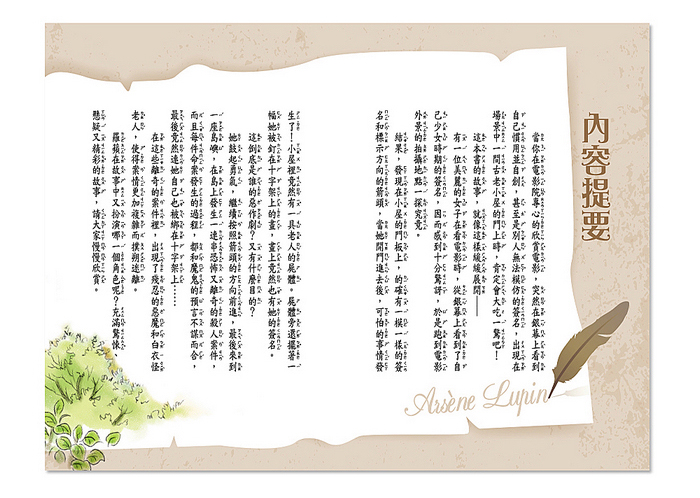 內容提要
當你在電影院專心的欣賞電影，突然在銀幕上看到
自己慣用並自創，甚至是別人無法模仿的簽名，出現在
場景中一間古老小屋的門上時，肯定會大吃一驚吧！
這本書的故事，就像這樣緩緩展開——
有一位美麗的女子在看電影時，從銀幕上看到了自
己少女時期的簽名，因而感到十分驚訝，於是跑到電影
外景的拍攝地點一探究竟。
結果，發現在小屋的門板上，的確有一模一樣的簽
名和標示方向的箭頭，當她開門進去後，可怕的事情發
生了！小屋裡竟然有一具老人的屍體。屍體旁還擺著一
幅她被釘在十字架上的畫，畫上竟然也有她的簽名。
這倒底是誰的惡作劇？又有什麼目的？
她鼓起勇氣，繼續按照箭頭的方向前進，最後來到
一座島嶼，在島上發生一連串恐怖又離奇的殺人案件，
而且每件命案發生的過程，都和魔鬼的預言不謀而合，
最後竟然連她自己也被綁在十字架上……
在這些離奇的案件裡，出現了殘忍的惡魔和白衣怪
老人，使得案情更加複雜而撲朔迷離。
羅蘋在故事中又扮演哪一個角色呢？充滿驚悚、
懸疑又精彩的故事，請大家慢慢欣賞。
Arsène Lupin